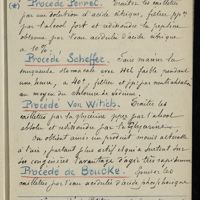 (*) Procédé Jennel. Traiter les maillettes
par une solution d'acide nitrique, filtrer, ppter
par l'alcool fort et redissoudre la
obtenue par l'eau acidulée d'acide nitrique
à 10%.
Procédé Scheffer. Faire macérer la
muqueuse stomacale avec HCl faible pendant
une heure, à 40°, filtrer et précipiter
au moyen du chlorure de sodium.
Procédé Von Wittich. Traiter les
maillettes par la glycérine ppter par l'alcool
absolu et redissoudre par la glycérine.
On obtient ainsi un produit moins actuelle
à l'air, partant plus actif et qui a surtout sur
ses congénères l'avantage d'agir très rapidement
Procédé de Brucke. Épuiser les
maillettes par l'eau acidulée d'acide phosphorique